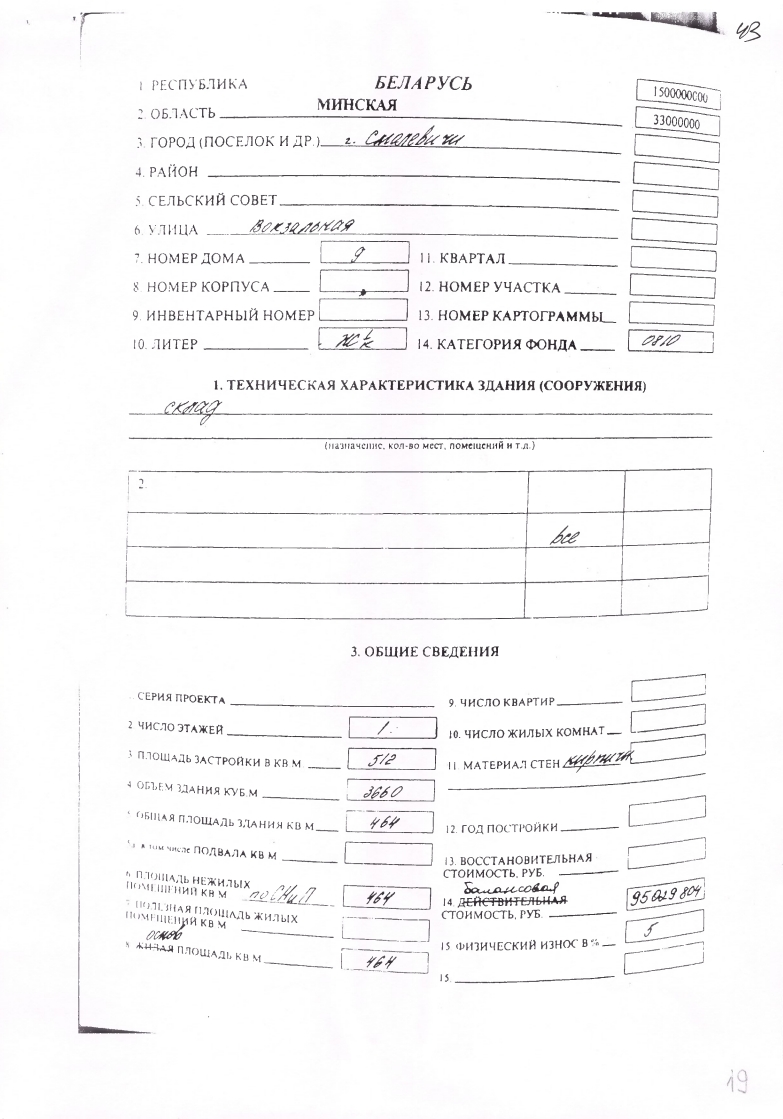 43
1 РЕСПУБЛИКА БЕЛАРУСЬ 1500000000
2. ОБЛАСТЬ МИНСКАЯ 33000000
3. ГОРОД (ПОСЕЛОК И ДР.) г. Смолевичи
4. РАЙОН
5. СЕЛЬСКИЙ СОВЕТ
6. УЛИЦА Вокзальная
7. НОМЕР ДОМА 9 11. КВАРТАЛ
8. НОМЕР КОРПУСА 12. НОМЕР УЧАСТКА
9. ИНВЕНТАРНЫЙ НОМЕР 13. НОМЕР КАРТОГРАММЫ
10. ЛИТЕР 14. КАТЕГОРИЯ ФОНДА 0810
1. ТЕХНИЧЕСКАЯ ХАРАКТЕРИСТИКА ЗДАНИЯ (СООРУЖЕНИЯ)
склад
(назначение, кол-во мест, помещений и т.д.)
2.
все
3. ОБЩИЕ СВЕДЕНИЯ
СЕРИЯ ПРОЕКТА 9. ЧИСЛО КВАРТИР
2. ЧИСЛО ЭТАЖЕЙ 1. 10. ЧИСЛО ЖИЛЫХ КОМНАТ
3 ПЛОЩАДЬ ЗАСТРОЙКИ В КВ М 512 11. МАТЕРИАЛ СТЕН кирпичн
4 ОБЪЕМ ЗДАНИЯ КУБ.М 3660
ОБЩАЯ ПЛОЩАДЬ ЗДАНИЯ КВ М 464 12. ГОД ПОСТРОЙКИ
в том числе ПОДВАЛА КВ М 13. ВОССТАНОВИТЕЛЬНАЯ
СТОИМОСТЬ, РУБ.
6. ПЛОЩАДЬ НЕЖИЛЫХ
ПОМЕЩЕНИЙ КВ М по СНиП 464
Балансовая
14 ДЕЙСТВИТЕЛЬНАЯ
СТОИМОСТЬ, РУБ. 95029804
ПОЛЕЗНАЯ ПЛОЩАДЬ ЖИЛЫХ
ПОМЕЩЕНИЙ КВ М
15 ФИЗИЧЕСКИЙ ИЗНОС В % 5
основ
8. ЖИЛАЯ ПЛОЩАДЬ КВ М 464
15.
19